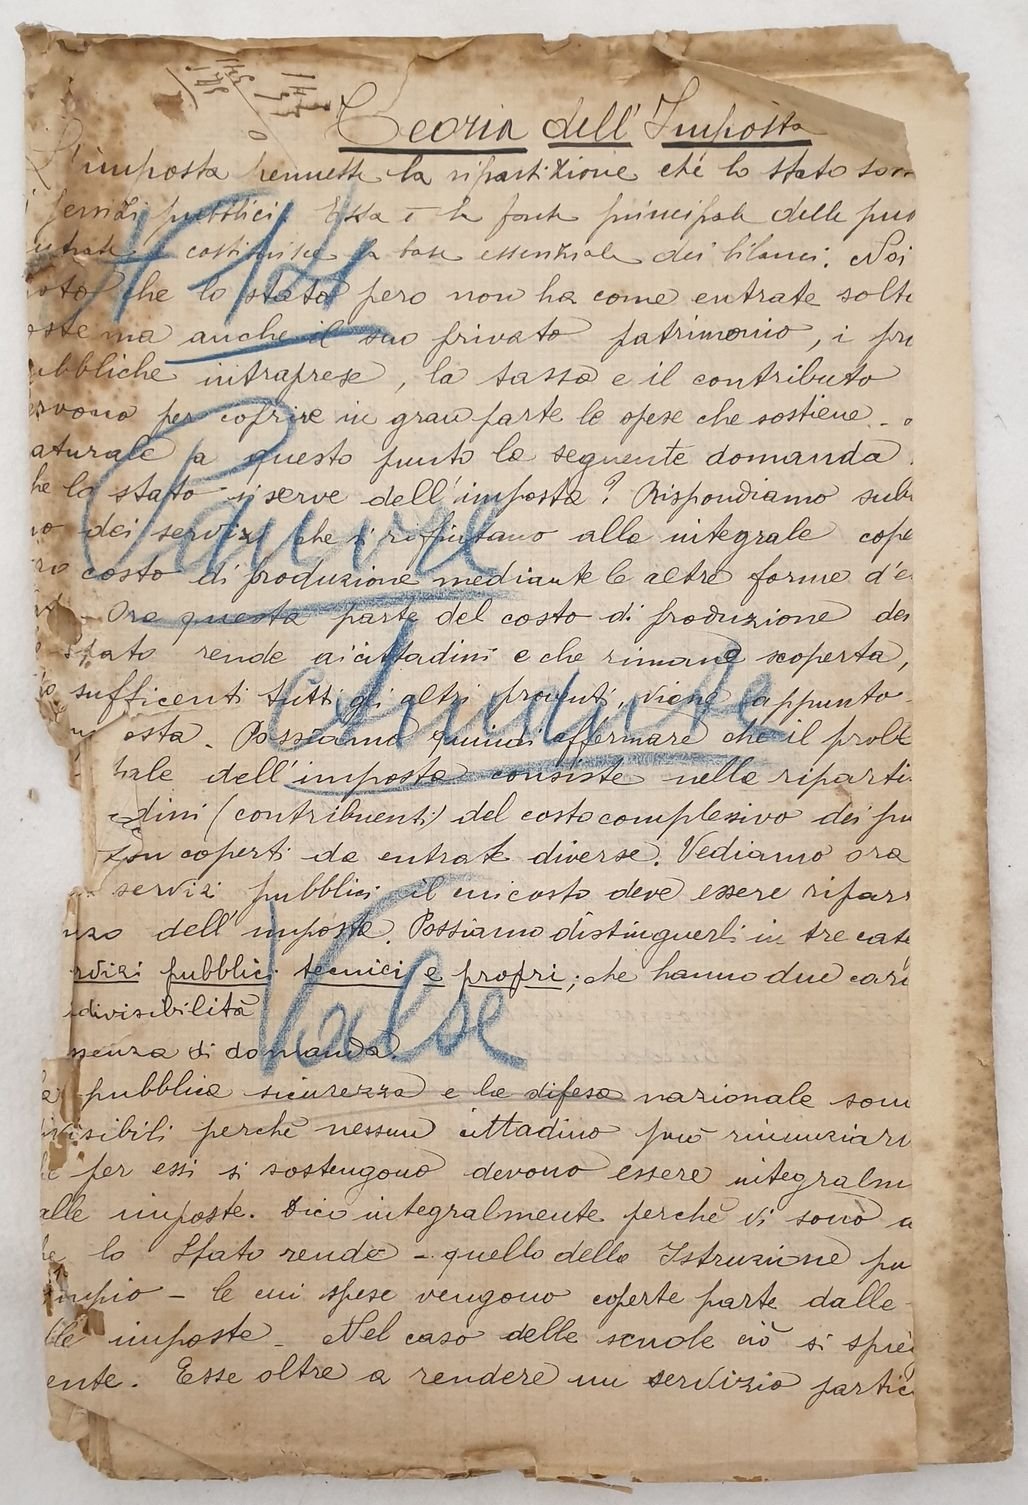 Teoria dell'Imposta
L'imposta permette la ripartizione che lo stato
servizi pubblici. Essa è la fonte principale delle
entrate e costituisce la base essenziale dei bilanci. Noi
che lo stato pero non ha come entrate
ma anche il suo privato patrimonio, i
ubbliche intraprese, la tassa e il contributo
ervono per coprire in gran parte le spese che sostiene.
aturale a questo punto la seguente domanda
he lo stato si serve dell'imposta? Rispondiamo
dei servizi che si rifiutano alla integrale cope
costo di produzione mediante le altre forme d'e
Ora questa parte del costo di produzione dei
Stato rende ai cittadini e che rimane scoperta,
sufficenti tutti gli altri proventi, viene appunto
osta. Possiamo quindi affermare che il probl
tale dell'imposta consiste nella riparti
dini (contribuenti) del costo complessivo dei pu
non coperti da entrate diverse. Vediamo ora
servizi pubblici il cui costo deve essere ripar
nzo dell'imposta. Possiamo distinguerli in tre cate
rvizi pubblici tecnici e propri; che hanno due cara
ndivisibilità
ssenza di domanda.
pubblica sicurezza e la difesa nazionale sono
visibili perchè nessun cittadino può rinunziare
per essi si sostengono devono essere integralm
alle imposte. Dico integralmente perchè vi sono a
he lo Stato rende - quello della Istruzione pu
empio - le cui spese vengono coperte parte dalle
lle imposte - Nel caso delle scuole ciò si spieg
ente. Esse oltre a rendere un servizio partic
N 14
Valse